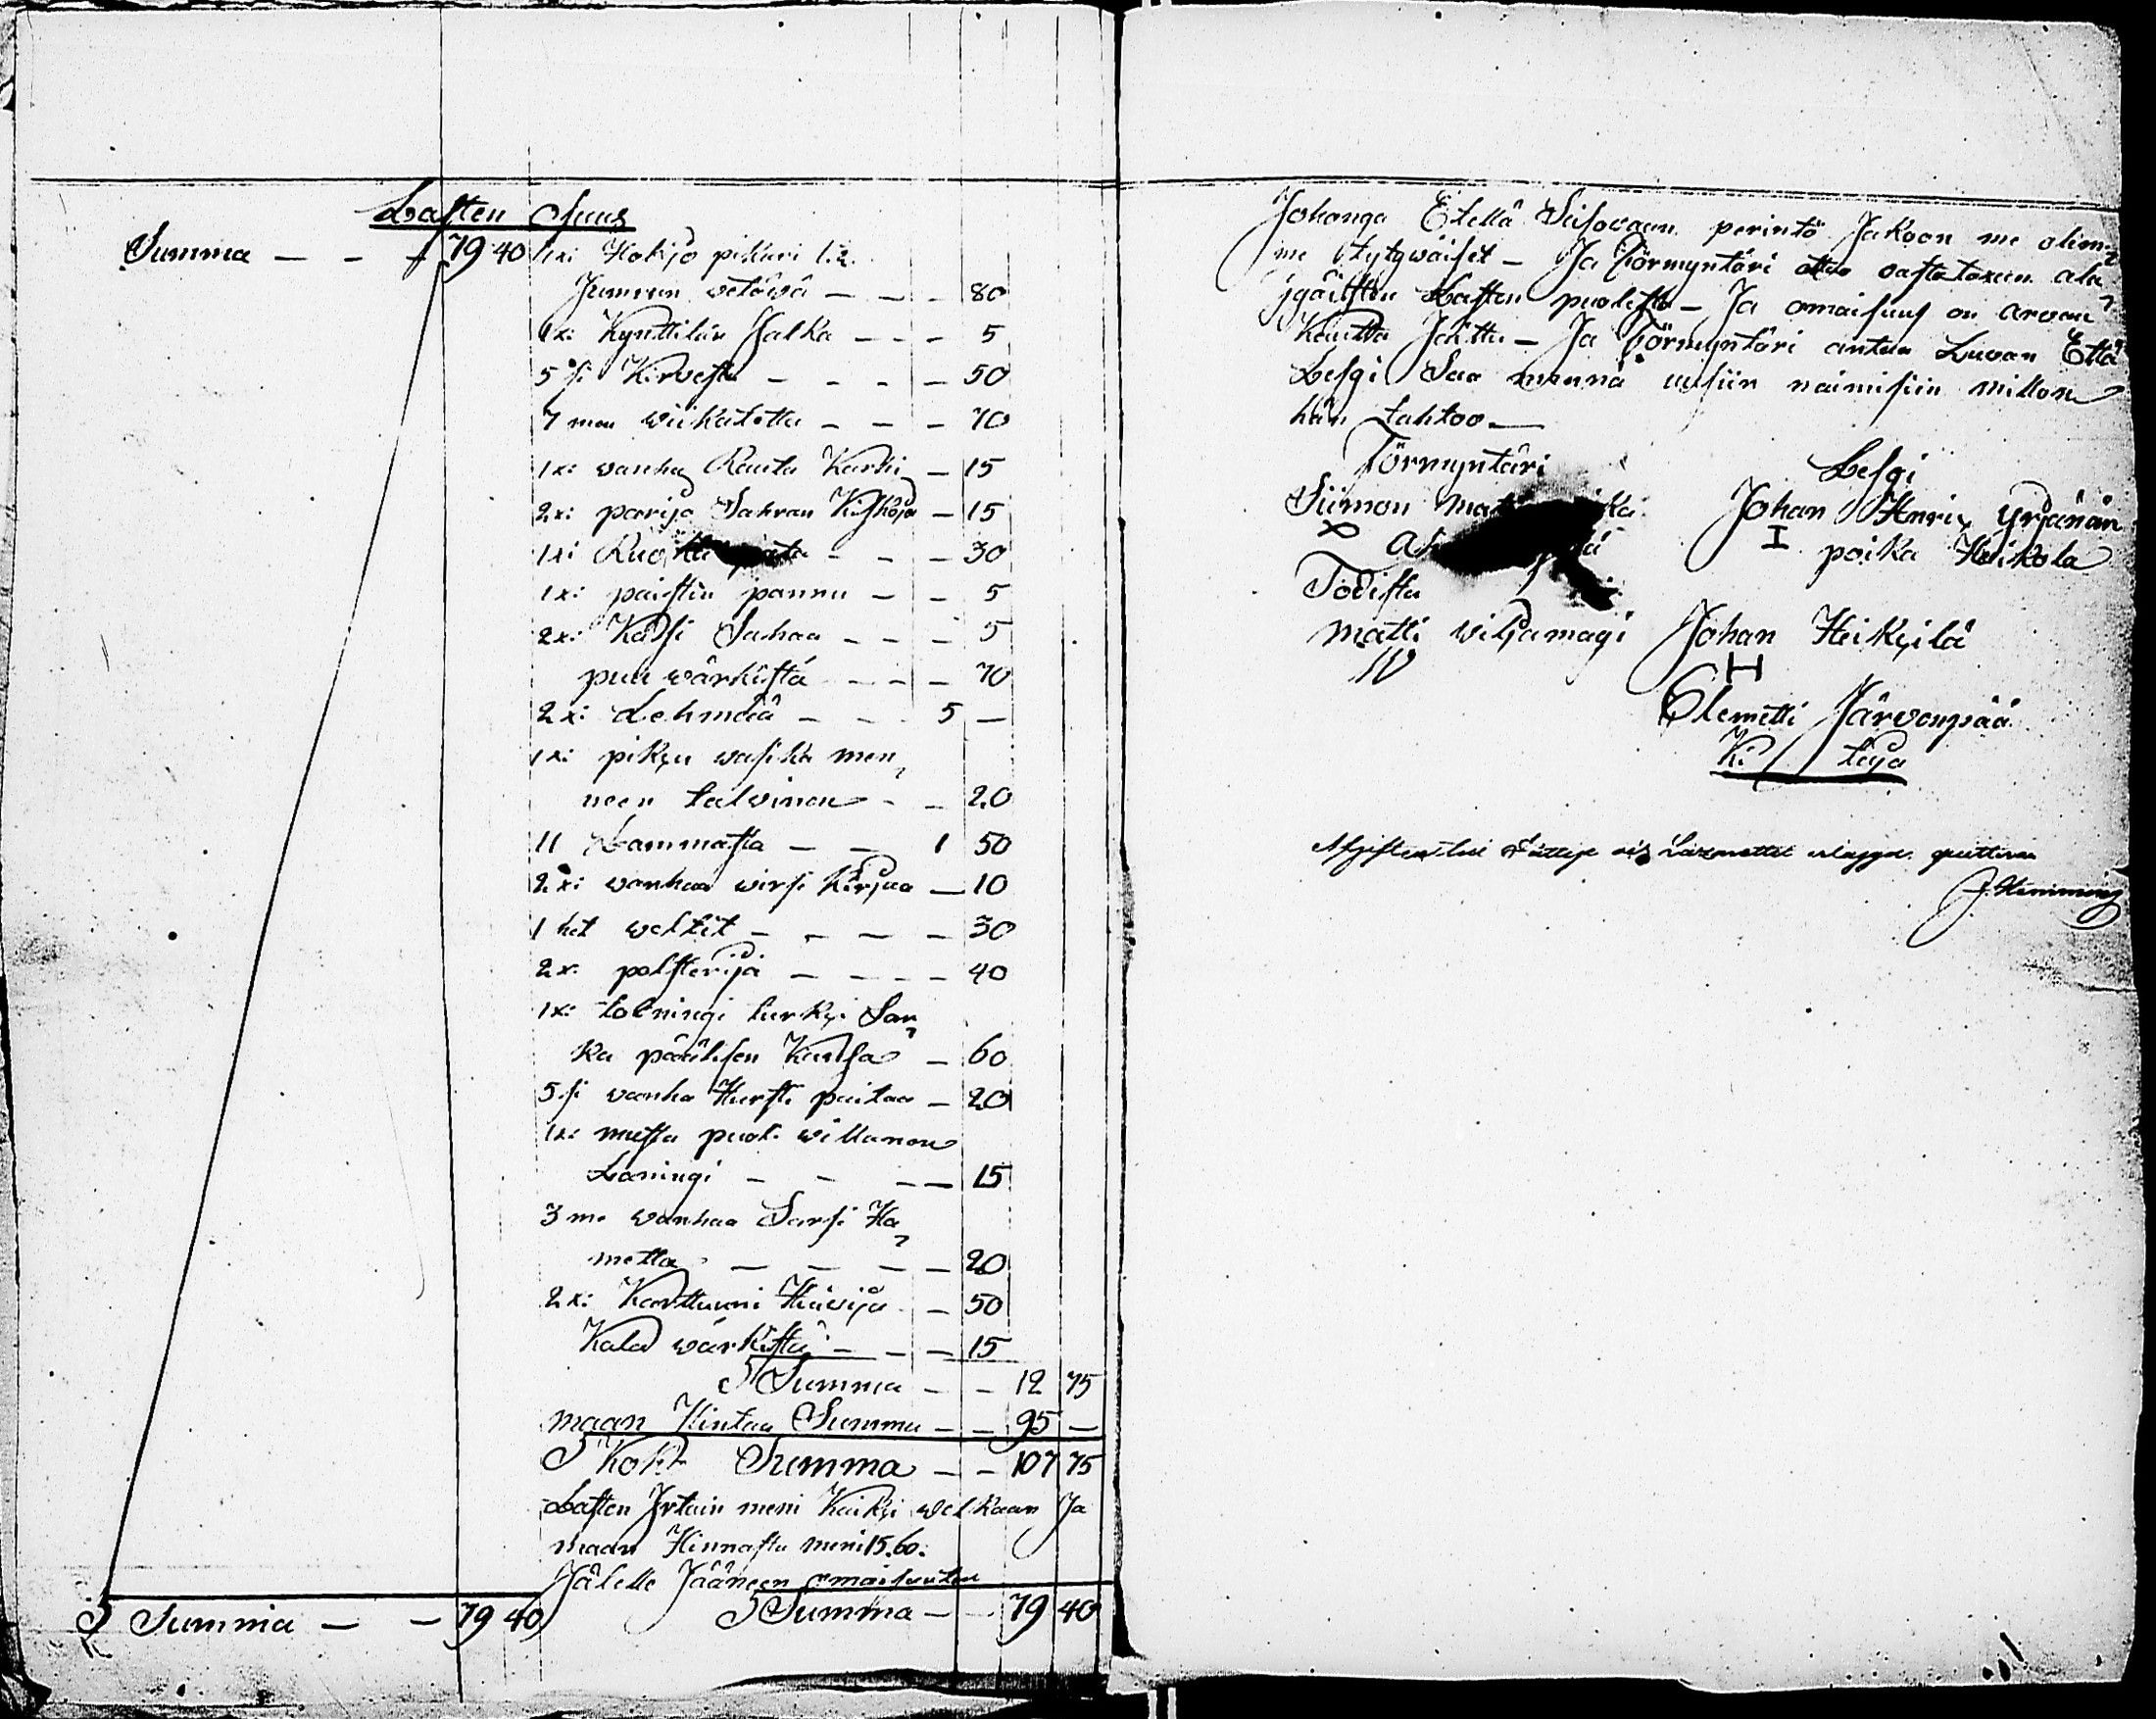 Lasten Osuus
Summa — — 79 40
1x: Hokijo pikari 1:2.
Jumrun vetävä — — 80
1x: Kynttilän Jalka — — — 5
5 si Kirvestä — — — — 50
7 män wiikatetta — — — 70
1x: wanha Rauta Karhi — 15
2x: parija Sahran Kiskoja — 15
1x: — — — 30
1x: paistin pannu — — 5
2x: Käsi Sahaa — — — 5
puu wärkistä — — — 70
2x: Lehmää — — — 5 —
1x: pikku wasika men,
neen talvinen — — 20
11 Lammasta — — 1 50
2x: wanhaa wirsi Kirjaa — 10
1 het weltit — — — — 30
2x: polsterija — — — — 40
1x: tolningi turki Sar,
ka päälisen Kansa — 60
5 si wanha Hursti paitaa — 20
1x: musta puol. willanen
Laningi — — — — 15
3 me wanhaa Sarsi Ha,
metta — — — — 20
2x: Karttuuni Hiivija — 50
Kala wärkistä — — — 15
S Summa — — 12 75
maan Hintaa Summa — — 95 —
S Koko Summa — — 107 75
Lasten Irtain meni Kaikki welkaan Ja
maan Hinnasta meni 15.60:
Jälelle Jääneen omaisuuden
S Summa — — 79 40 S Summa — — 79 40
Johanga Etellä Seisovaan perintö Jakoon me olem,
me tytywäiset — Ja Förmyntäri ottaa vastataxeen ala
jgäisten Lasten puolesta — Ja omaisuus on arvon
Kautta Jaittu — Ja Förmyntäri antaa Luvan Että
Lesgi Saa mennä uusiin naimisiin millon
hän tahtoo —
Förmyntäri Lesgi
Siimon Johan Henrix Yrjänän
I poika Heikola
Todista
Matti wiljamagi Johan Heikkilä
W H
Clemetti Järvenpää
Ki // teija
J. Hemming